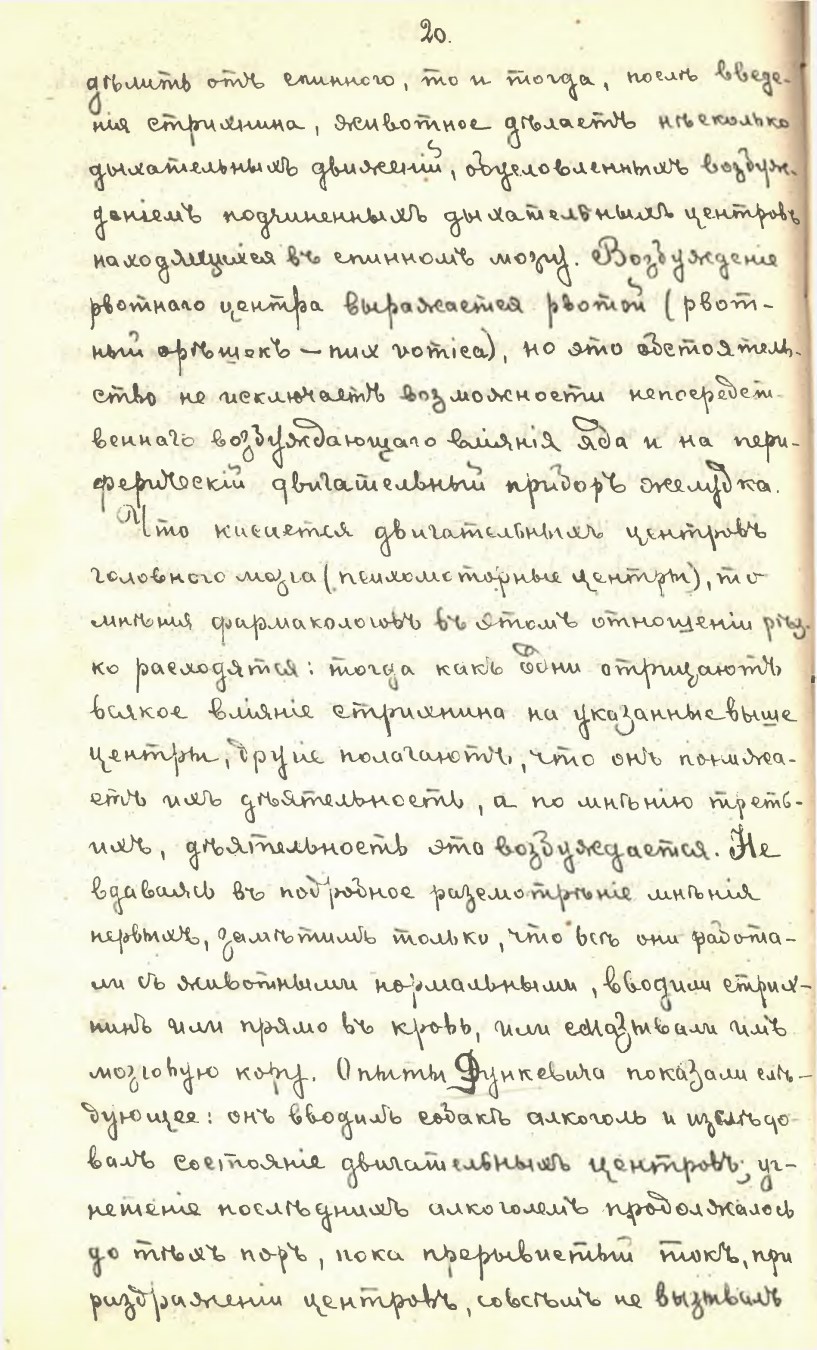 20.
дѣлить отъ спинного, то и тогда, послѣ введе-
нія стрихнина, животное дѣлаетъ нѣсколько
дыхательныхъ движеній, обусловленныхъ возбуж-
деніемъ подчиненныхъ дыхательныхъ центровъ
находящихся въ спинномъ мозгу. Возбужденіе
рвотнаго центра выражается рвотой (рвот-
ный орѣшекъ – nux vomica), но это обстоятель-
ство не исключаетъ возможности непосредст-
веннаго возбуждающаго вліянія яда и на пери-
ферическій двигательный приборъ желудка.
Что касается двигательныхъ центровъ
головного мозга (психомоторные центры), то
мнѣния фармакологовъ въ этомъ отношеніи рѣз-
ко расходятся: тогда какъ одни отрицаютъ
всякое вліяніе стрихнина на указанные выше
центры, другіе полагаютъ, что онъ понижа-
етъ ихъ дѣятельность, а по мнѣнію треть-
ихъ, дѣятельность эта возбуждается. Не
вдаваясь въ подробное разсмотрѣніе мнѣнія
первыхъ, замѣтимъ только, что всѣ они работа-
ли съ животными нормальными, вводили стрих-
нинъ или прямо въ кровь, или смазывали имъ
мозговую кору. Опыты Дункевича показали слѣ-
дующее: онъ вводилъ собакѣ алкоголь и изслѣдо
валъ состояніе двигательныхъ центровъ; уг-
нетеніе послѣднихъ алкоголемъ продолжалось
до тѣхъ поръ, пока прерывистый токъ, при
раздраженіи центровъ, совсѣмъ не вызывалъ